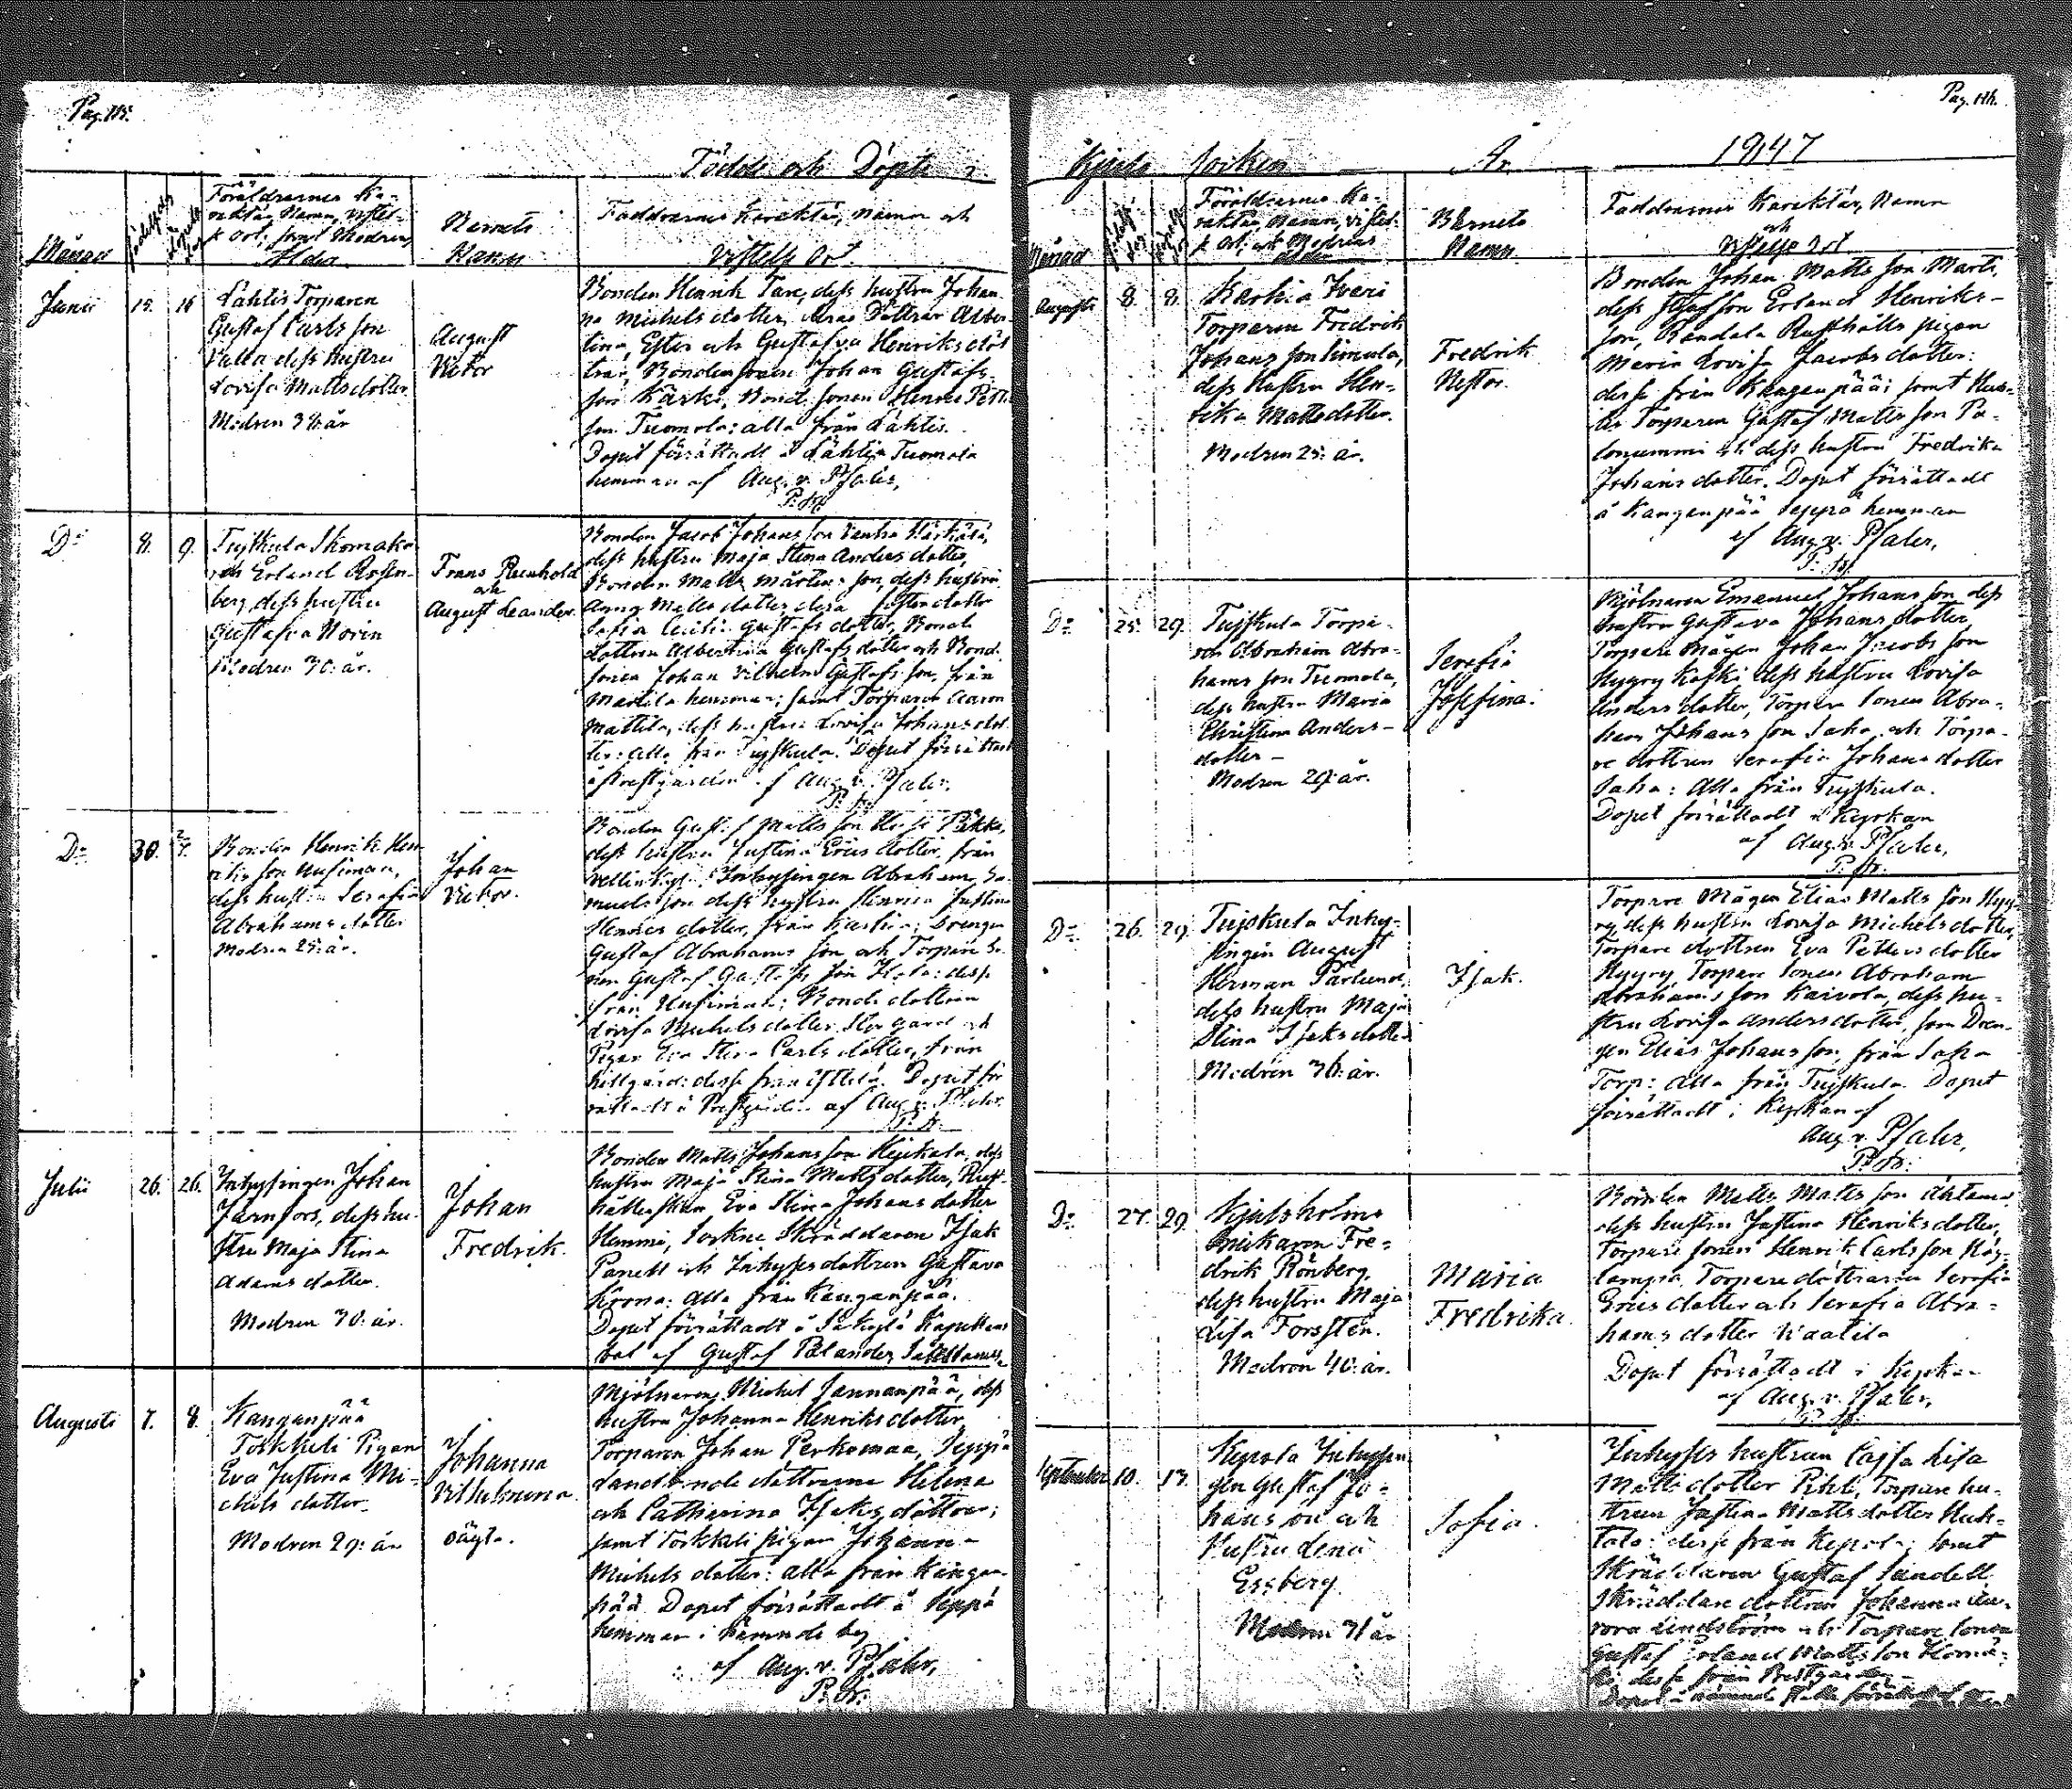 Pag. 115.
Födde och Döpte i
Månad
Födelse dag
Döpelse dag
Föräldrarnes Ka-
raktär, Namn, vistel-
se Ort; samt Modrens
Ålder
Barnets
Namn
Faddrarnes Karaktär, Namn och
Vistelse Ort.
Junii 15. 16
Lähtis Torparen
Gustaf Carls son
Valla dess hustru
Lovisa Mattsdotter
Modren 38 år
August
Victor
Bonden Henrik Tare, dess hustru Johan-
na Michels dotter, deras Döttrar Alber-
tina, Ester och Gustafva Henriks döt-
trar, Bondesonen Johan Gustafs-
son Kärki, Bonde sonen Henric
son Tuomola: alla från Lähtis.
Dopet förrättadt å Lähtis Tuomola
hemman af Aug. v. Pfaler,
D:o 8. 9.
Tujskula Skomaka-
ren Erland Rosen-
berg dess hustru
Gustafva Norin
Modren 30. år.
Frans Reinhold
och
August Leander.
Bonden Jacob Johans son
dess hustru Maja Stina Anders dotter,
Bonden Matts Mårtens son, dess hustru
Anna Matts dotter,
Sofia Cecilia Gustafs dotter, Bonde
dottren Albertina Gustafs dotter och Bonde
sonen Johan Vilhelm Gustafs son, från
Mattila hemman; samt Torparen Aaron
Mattila, dess hustru Lovisa Johans dot-
ter: alla från Tujskula. Dopet förrättadt
å Prestgården af Aug. v. Pfaler,
D:o 30.
Bonden Henrik Hen-
riks son Husiman,
dess hustru Serafia
Abrahams dotter
Modren 25: år.
Johan
Victor.
Bonden Gustaf Matts son
dess hustru Justina Erics dotter, från
Inhysingen Abraham Sa-
muels son dess hustru Henrica Justina
Henrics dotter, från Karhia; Drengen
Gustaf Abrahams son och Torpare So-
nen Gustaf Gustafs son
från Husiman; Bonde dottren
Lovisa Michels dotter Storgård och
Pigan Eva Stina Carls dotter, från
Lillgård: desse från Dopet för-
rättadt å Prestgården af Aug. v. Pfaler.
Julii 26. 26.
Inhysingen Johan
Järnfors, dess hu-
stru Maja Stina
Adams dotter.
Modren 30: år.
Johan
Fredrik.
Bonden Matts Johans son Kepkala, dess
hustru Maja Stina Matts dotter, Rust-
hållerskan Eva Stina Johans dotter
Hemmi, Sockne Skräddaren Isak
och Inhyses dottren Gustava
Krona: alla från Kanganpää.
Dopet förrättadt å Säkylä Kapellans
bol af Gustaf Polander,
Augusti 7. 8.
Kanganpää
Torkkeli Pigan
Eva Justina Mi-
chels dotter
Modren 29: år
Johanna
Vilhelmina
oägta.
Mjölnaren Michel Sannanpää, dess
hustru Johanna Henriks dotter,
Torparen Johan Perkomaa, Seppä
landbonde döttrarne Helena
och Catharina Isaks döttrar;
samt Torkkeli pigan Johanna
Michels dotter: alla från Kangan-
pää. Dopet förrättadt å Seppä
hemman i nämnde by
af Aug. v. Pfaler,
Pag. 116.
Kjulo Socken År 1847
Månad
Föräldrarnes Ka-
raktär, Namn, vistel-
se Ort; och Modrens
ålder
Barnets
Namn.
Faddrarnes Karaktär, Namn
och
Vistelse Ort
Augusti 8. 8.
Karhia Iveri
Torparen Fredrik
Johans son Simula,
dess hustru Hen-
rika Mattsdotter.
Modren 25: år.
Fredrik
Nestor.
Bonden Johan Matts son Marti,
dess Erland Henriks-
son, Randala Rusthålls pigan
Maria Lovisa Jacobs dotter:
desse från Kanganpää; samt
Torparen Gustaf Matts son Pa-
lonummi och dess hustru Fredrika
Johans dotter. Dopet förrättadt
å Kanganpää Seppä hemman
af Aug. v. Pfaler,
D:o 25. 29.
Tujskula Torpa-
ren Abraham Abra-
hams son Tuomola,
dess hustru Maria
Christina Anders-
dotter –
Modren 29: år.
Serafia
Josefina.
Mjölnaren Emanuel Johans son, dess
hustru Gustava Johans dotter,
Torpare Mågen Johan Jacobs son
Nygry Koski dess hustru Lovisa
Anders dotter, Torpare Sonen Abra-
ham Johans son Saha, och Torpa-
re dottren Serafia Johans dotter
Saha: Alla från Tujskula.
Dopet förrättadt i Kyrkan
af Aug. v. Pfaler,
D:o 26. 29.
Tujskula Inhy-
singen August
Herman Pärlund,
dess hustru Maja
Stina Isaks dotter
Modren 36: år.
Isak.
Torpare Mågen Elias Matts son Nyg-
ry, dess hustru Lovisa Michels dotter,
Torpare dottren Eva Petters dotter
Nygry, Torpare Sonen Abraham
Abrahams son Kaivola, dess hu-
stru Lovisa Anders dotter, som Dren-
gen Elias Johans son, från Saha
Torp: Alla från Tujskula. Dopet
förrättadt i Kyrkan af
Aug. v. Pfaler,
D:o 27. 29.
Kjulsholms
Fre-
drik Rönberg,
dess hustru Maja
Lisa Forsstén.
Modren 40: år.
Maria
Fredrika.
Bonden Matts Matts son
dess hustru Justina Henriks dotter,
Torpare sonen Henrik Carls son
Torpare döttrarne Serafia
Erics dotter och Serafia Abra-
hams dotter Kaatila
Dopet förrättadt i Kyrkan
af Aug. v. Pfaler,
September 10. 13.
Kepola Inhysin-
gen Gustaf Jo-
hans son och
Hustru Lena
Essberg.
Modren 31 år
Sofia.
Inhyses hustrun Cajsa Lisa
Matts dotter Pihl, Torpare hu-
strun Justina Matts dotter Huh-
tala: desse från Kepola; samt
Skräddaren Gustaf Sandell
Skräddare dottren Johanna Au-
rora Lindström och Torpare Sonen
Gustaf Erland Matts son
desse från Prestgården